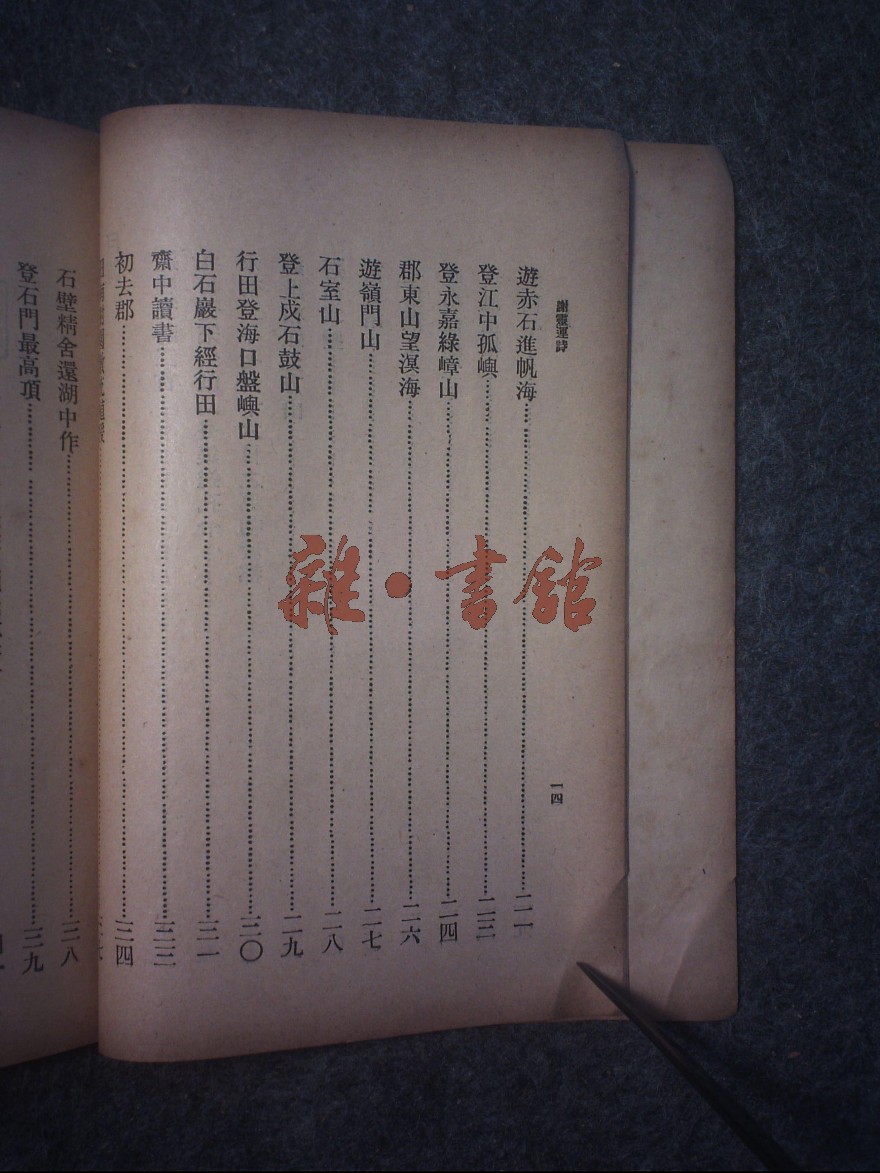 謝靈運詩
一四
遊赤石進帆海……二一
登江中孤嶼……二三
登永嘉綠嶂山……二四
郡東山望溟海……二六
遊嶺門山……二七
石室山……二八
登上戍石鼓山……二九
行田登海口盤嶼山……三〇
白石巖下經行田……三一
齋中讀書……三三
初去郡……三四
石壁精舍還湖中作……三八
登石門最高頂……三九
雜·書館